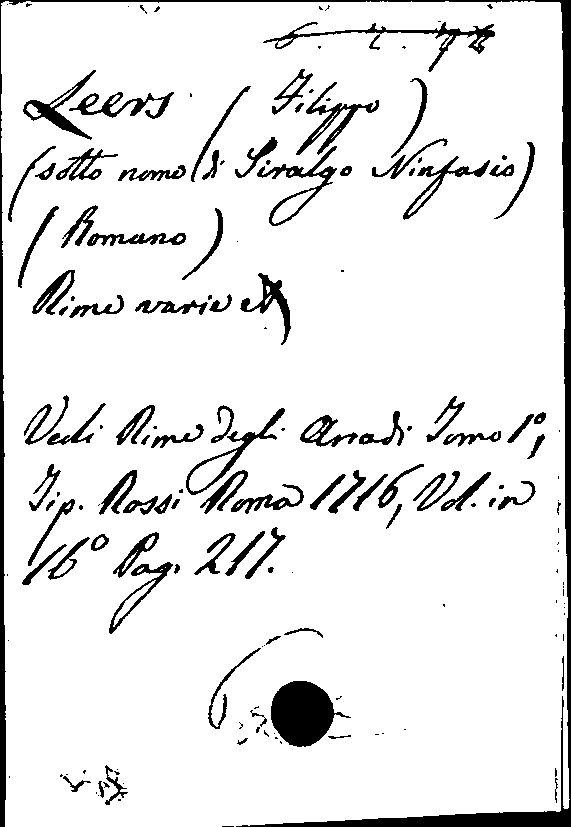 6. 2. 76
Leers (Filippo)
(sotto nome di Siralgo Ninfasio)
(Romano)
Rime varie
Vedi Rime degli Arcadi Tomo 1º,
Tip. Rossi Roma 1716, Vol. in
16º Pag. 217.